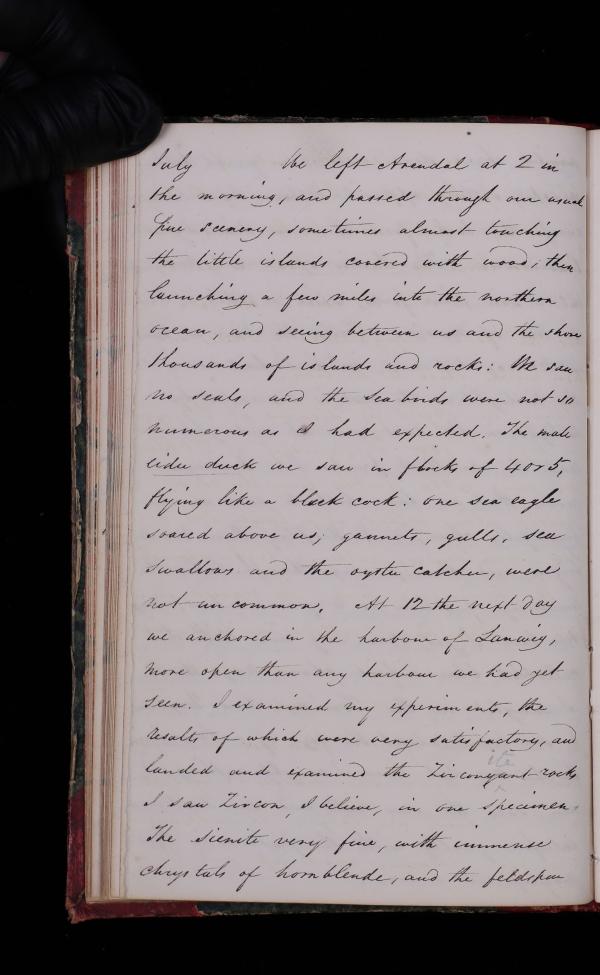 July We left Arendal at 2 in
the morning, and passed through our usual
fine scenery, sometimes almost touching
the little islands covered with wood; then
launching a few miles into the northern
ocean, and seeing between us and the shore
thousands of islands and rocks: We saw
no seals, and the sea birds were not so
numerous as I had expected. The male
eider duck we saw in flocks of 4 or 5,
flying like a black cock: one sea eagle
soared above us; gannets, gulls, sea
swallows and the oyster catcher, were
not uncommon. At 12 the next day
we anchored in the harbour of Lanwig,
more open than any harbour we had yet
seen. I examined my experiments, the
results of which were very satisfactory, and
landed and examined the rocks
I saw Zircon, I believe, in one specimen.
The sienite very fine, with immense
chrystals of hornblende, and the feldspar